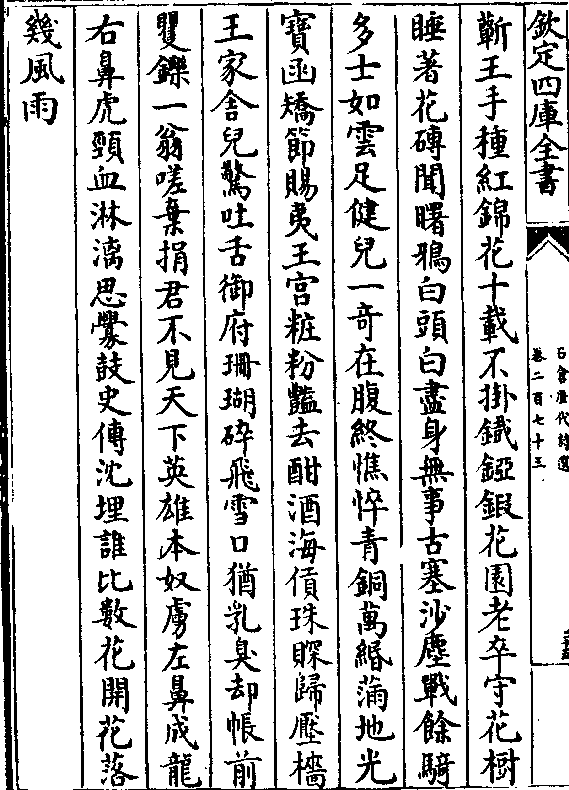 欽定四庫全書
石倉歷代詩選
卷二百七十三
蘄王手種紅錦花十載不掛鐵錏鍜花園老卒守花樹
睡著花磚聞曙鴉白頭白盡身無事古塞沙塵戰餘騎
多士如雲足健兒一奇在腹終憔悴青銅萬緡滿地光
寶函矯節賜夷王宫粧粉豔去酣酒海債珠賝歸壓檣
王家舍兒驚吐舌御府珊瑚碎飛雪口猶乳臭却帳前
矍鑠一翁嗟棄捐君不見天下英雄本奴虜左鼻成龍
右鼻虎頸血淋漓思釁鼓史傳沈埋誰比數花開花落
幾風雨